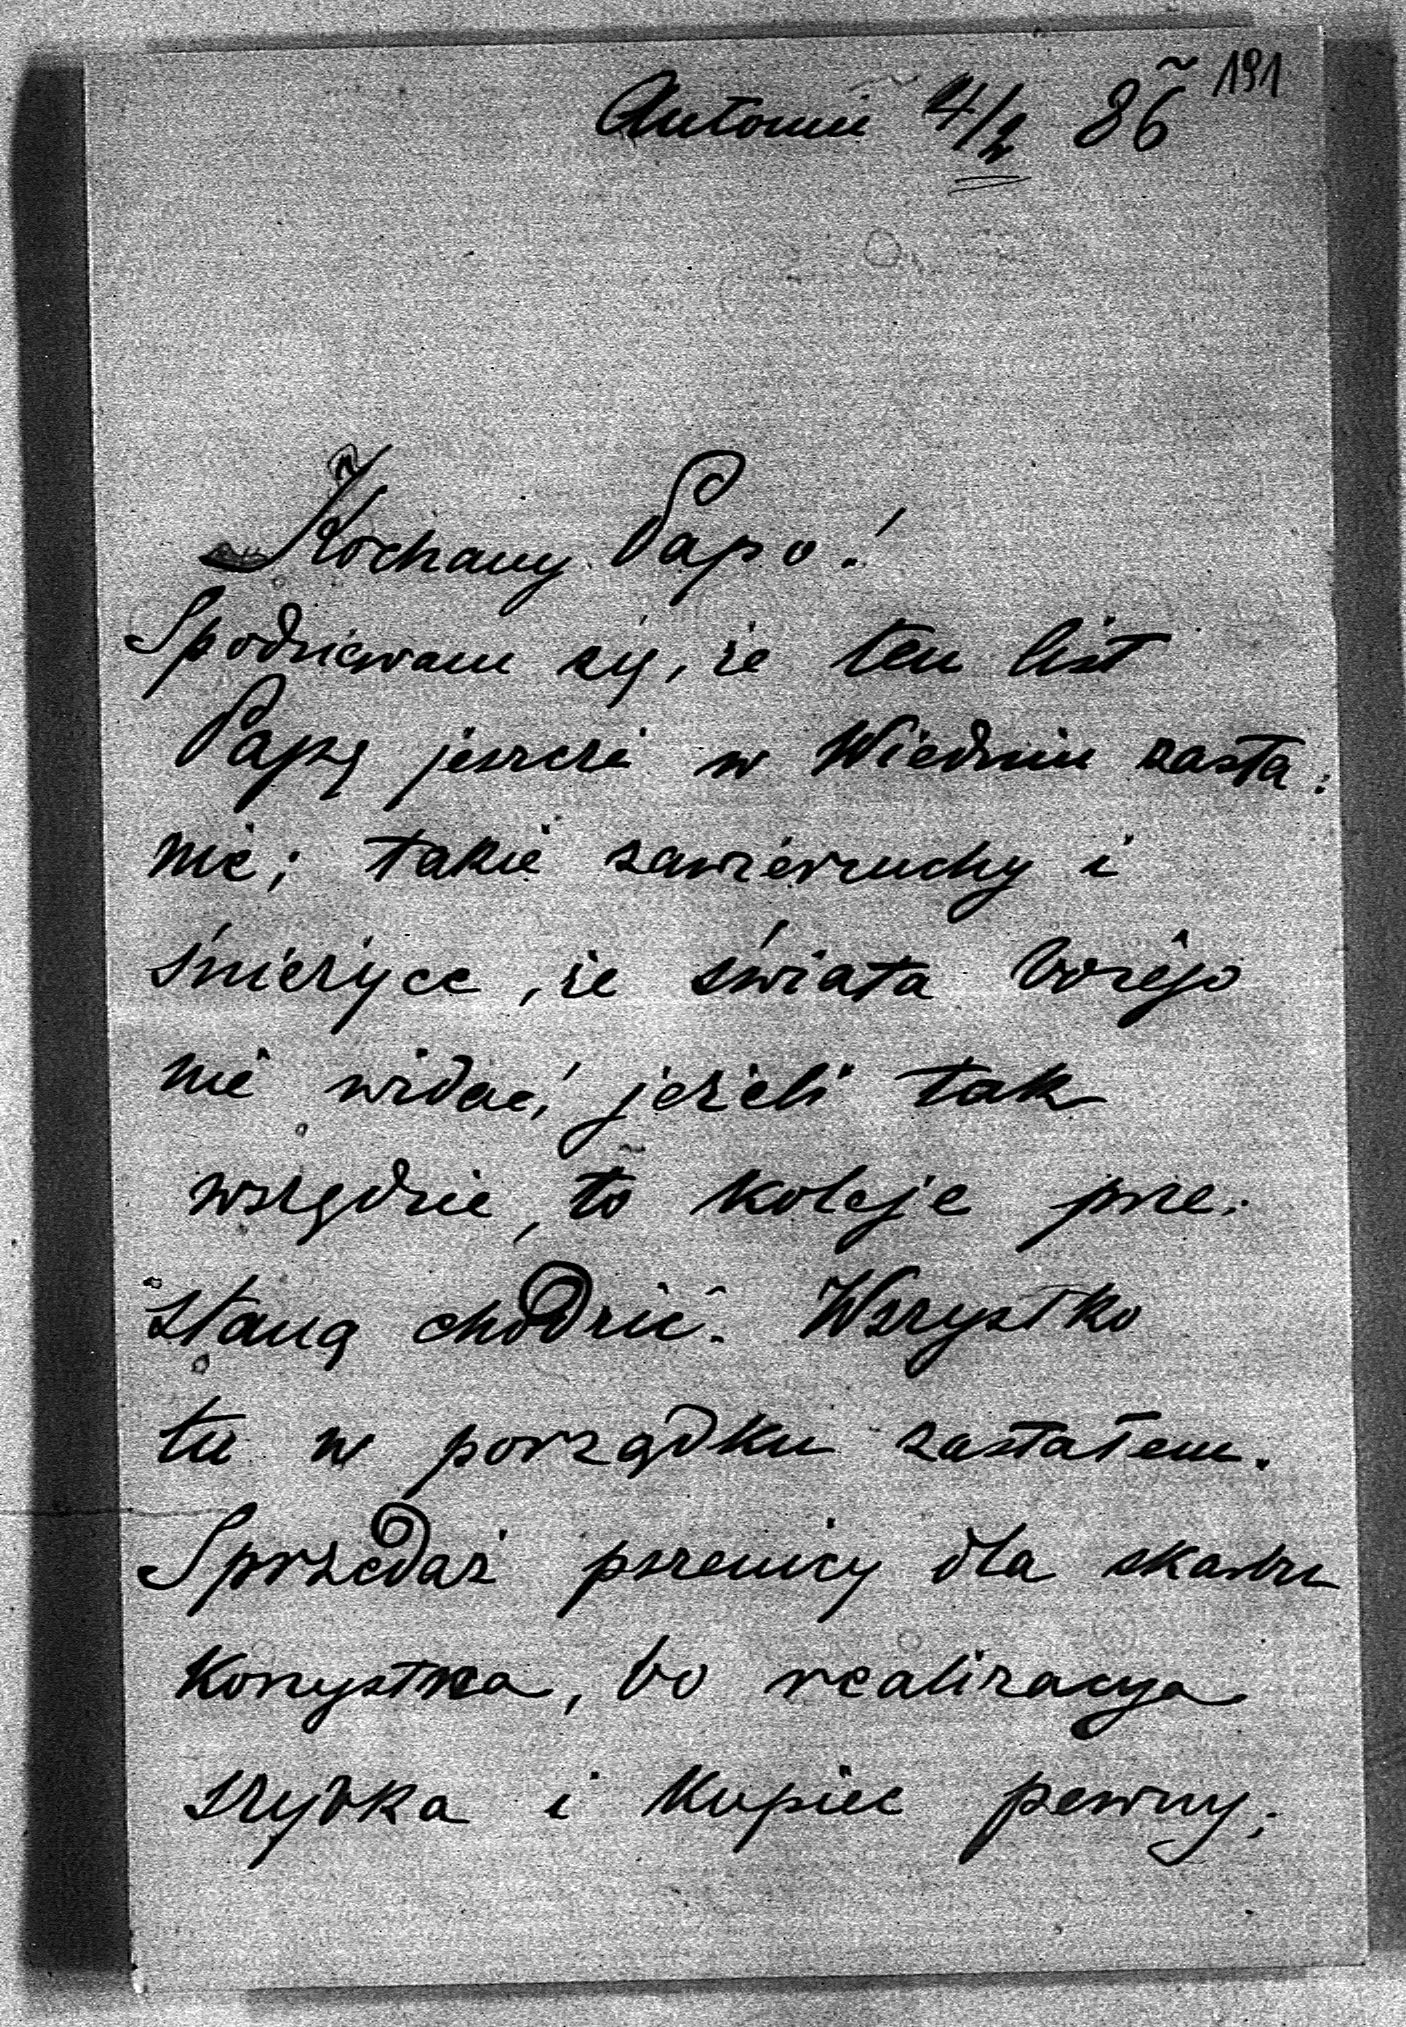 191
Antonin 4/2 86
Kochany Papo!
Spodziewam się, że ten list
Papę jeszcze w Wiedniu zasta:
nie; takie zawieruchy i
śnieżyce, że świata bożego
nie widać, jeżeli tak
wszędzie, to koleje prze:
staną chodzić. Wszystko
tu w porządku zastałem.
Sprzedaż pszenicy dla skarbu
korzystna, bo realizacya
szybka i kupiec pewny;